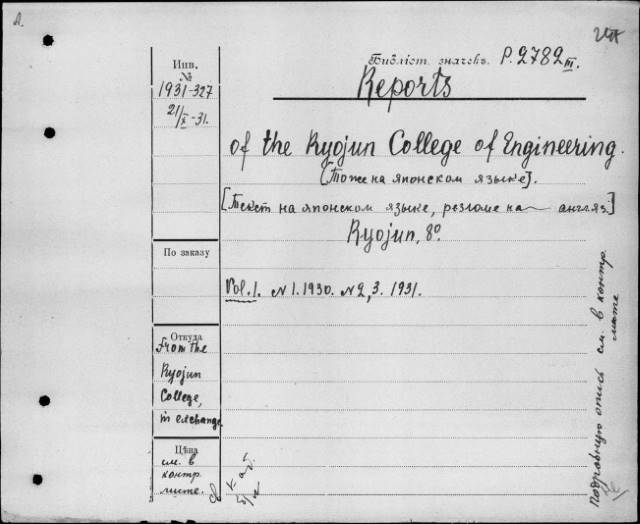 Инв.
№
1931-327
21/X-31.
Библіот. значекъ. P.2782 III.
Reports
of the Ryojun College of Engineering.
[Тоже на японском языке].
[Текст на японском языке, резюме на англяз.]
Ryojun, 8°.
По заказу
Vol.1. N1.1930. N2,3. 1931.
Откуда
From the
Ryojun
College,
in exchange
Цѣна
см. в
контр.
листе.
Подробную опись см. в контр. листе